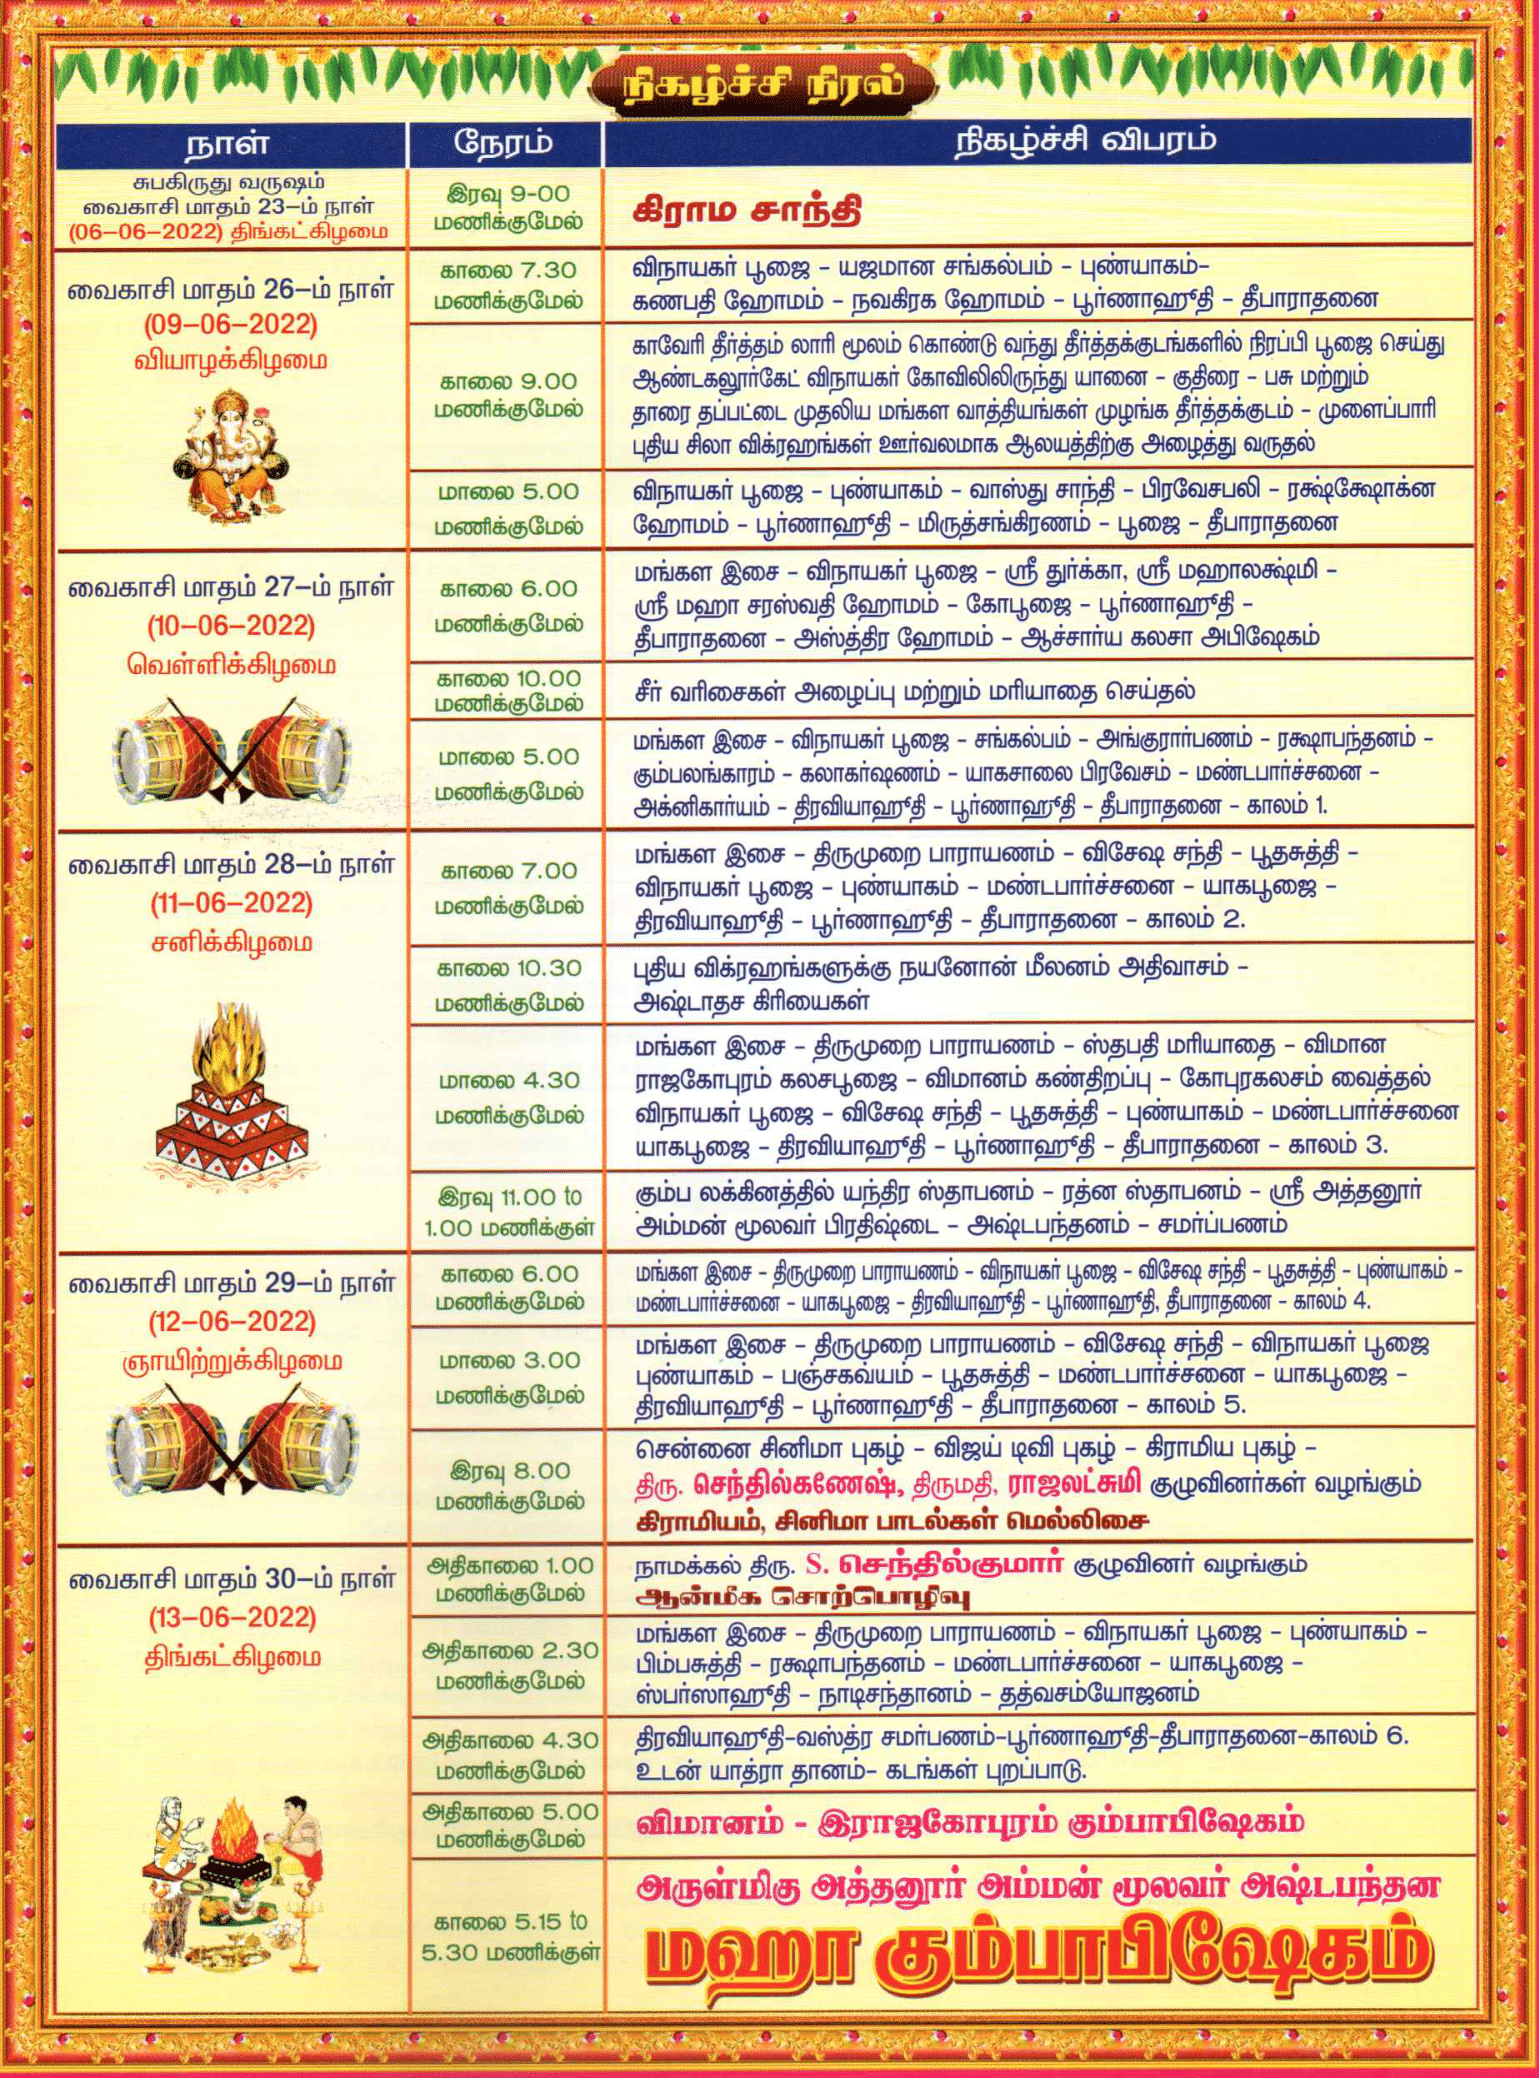 நிகழ்ச்சி நிரல்
நாள்
நேரம்
நிகழ்ச்சி விபரம்
சுபகிருது வருஷம்
வைகாசி மாதம் 23-ம் நாள்
(06-06-2022) திங்கட்கிழமை
இரவு 9-00
மணிக்குமேல்
கிராம சாந்தி
வைகாசி மாதம் 26-ம் நாள்
(09-06-2022)
வியாழக்கிழமை
காலை 7.30
மணிக்குமேல்
விநாயகர் பூஜை - யஜமான சங்கல்பம் - புண்யாகம்-
கணபதி ஹோமம் - நவகிரக ஹோமம் - பூர்ணாஹூதி - தீபாராதனை
காலை 9.00
மணிக்குமேல்
காவேரி தீர்த்தம் லாரி மூலம் கொண்டு வந்து தீர்த்தக்குடங்களில் நிரப்பி பூஜை செய்து
ஆண்டகலூர்கேட் விநாயகர் கோவிலிலிருந்து யானை - குதிரை - பசு மற்றும்
தாரை தப்பட்டை முதலிய மங்கள வாத்தியங்கள் முழங்க தீர்த்தக்குடம் - முளைப்பாரி
புதிய சிலா விக்ரஹங்கள் ஊர்வலமாக ஆலயத்திற்கு அழைத்து வருதல்
மாலை 5.00
மணிக்குமேல்
விநாயகர் பூஜை - புண்யாகம் - வாஸ்து சாந்தி - பிரவேசபலி - ரக்ஷ்க்ஷோக்ன
ஹோமம் - பூர்ணாஹூதி - மிருத்சங்கிரணம் - பூஜை - தீபாராதனை
வைகாசி மாதம் 27-ம் நாள்
(10-06-2022)
வெள்ளிக்கிழமை
காலை 6.00
மணிக்குமேல்
மங்கள இசை - விநாயகர் பூஜை - ஸ்ரீ துர்க்கா, ஸ்ரீ மஹாலக்ஷ்மி -
ஸ்ரீ மஹா சரஸ்வதி ஹோமம் - கோபூஜை - பூர்ணாஹூதி -
தீபாராதனை - அஸ்த்திர ஹோமம் - ஆச்சார்ய கலசா அபிஷேகம்
காலை 10.00
மணிக்குமேல்
சீர் வரிசைகள் அழைப்பு மற்றும் மரியாதை செய்தல்
மாலை 5.00
மணிக்குமேல்
மங்கள இசை - விநாயகர் பூஜை - சங்கல்பம் - அங்குரார்பணம் - ரக்ஷாபந்தனம் -
கும்பலங்காரம் - கலாகர்ஷணம் - யாகசாலை பிரவேசம் - மண்டபார்ச்சனை -
அக்னிகார்யம் - திரவியாஹூதி - பூர்ணாஹூதி - தீபாராதனை - காலம் 1.
வைகாசி மாதம் 28-ம் நாள்
(11-06-2022)
சனிக்கிழமை
காலை 7.00
மணிக்குமேல்
மங்கள இசை - திருமுறை பாராயணம் - விசேஷ சந்தி - பூதசுத்தி -
விநாயகர் பூஜை - புண்யாகம் - மண்டபார்ச்சனை - யாகபூஜை -
திரவியாஹூதி - பூர்ணாஹூதி - தீபாராதனை - காலம் 2.
காலை 10.30
மணிக்குமேல்
புதிய விக்ரஹங்களுக்கு நயனோன் மீலனம் அதிவாசம் -
அஷ்டாதச கிரியைகள்
மாலை 4.30
மணிக்குமேல்
மங்கள இசை - திருமுறை பாராயணம் - ஸ்தபதி மரியாதை - விமான
ராஜகோபுரம் கலசபூஜை - விமானம் கண்திறப்பு - கோபுரகலசம் வைத்தல்
விநாயகர் பூஜை - விசேஷ சந்தி - பூதசுத்தி - புண்யாகம் - மண்டபார்ச்சனை
யாகபூஜை - திரவியாஹூதி - பூர்ணாஹூதி - தீபாராதனை - காலம் 3.
இரவு 11.00 to
1.00 மணிக்குள்
கும்ப லக்கினத்தில் யந்திர ஸ்தாபனம் - ரத்ன ஸ்தாபனம் - ஸ்ரீ அத்தனூர்
அம்மன் மூலவர் பிரதிஷ்டை - அஷ்டபந்தனம் - சமர்ப்பணம்
வைகாசி மாதம் 29-ம் நாள்
(12-06-2022)
ஞாயிற்றுக்கிழமை
காலை 6.00
மணிக்குமேல்
மங்கள இசை - திருமுறை பாராயணம் - விநாயகர் பூஜை - விசேஷ சந்தி - பூதசுத்தி - புண்யாகம் -
மண்டபார்ச்சனை - யாகபூஜை - திரவியாஹூதி - பூர்ணாஹூதி, தீபாராதனை - காலம் 4.
மாலை 3.00
மணிக்குமேல்
மங்கள இசை - திருமுறை பாராயணம் - விசேஷ சந்தி - விநாயகர் பூஜை
புண்யாகம் - பஞ்சகவ்யம் - பூதசுத்தி - மண்டபார்ச்சனை - யாகபூஜை -
திரவியாஹூதி - பூர்ணாஹூதி - தீபாராதனை - காலம் 5.
இரவு 8.00
மணிக்குமேல்
சென்னை சினிமா புகழ் - விஜய் டிவி புகழ் - கிராமிய புகழ் -
திரு. செந்தில்கணேஷ், திருமதி, ராஜலட்சுமி குழுவினர்கள் வழங்கும்
கிராமியம், சினிமா பாடல்கள் மெல்லிசை
வைகாசி மாதம் 30-ம் நாள்
(13-06-2022)
திங்கட்கிழமை
அதிகாலை 1.00
மணிக்குமேல்
நாமக்கல் திரு. S. செந்தில்குமார் குழுவினர் வழங்கும்
ஆன்மீக சொற்பொழிவு
அதிகாலை 2.30
மணிக்குமேல்
மங்கள இசை - திருமுறை பாராயணம் - விநாயகர் பூஜை - புண்யாகம் -
பிம்பசுத்தி - ரக்ஷாபந்தனம் - மண்டபார்ச்சனை - யாகபூஜை -
ஸ்பர்ஸாஹூதி - நாடிசந்தானம் - தத்வசம்யோஜனம்
அதிகாலை 4.30
மணிக்குமேல்
திரவியாஹூதி-வஸ்த்ர சமர்பணம்-பூர்ணாஹூதி-தீபாராதனை-காலம் 6.
உடன் யாத்ரா தானம்- கடங்கள் புறப்பாடு.
அதிகாலை 5.00
மணிக்குமேல்
விமானம் - இராஜகோபுரம் கும்பாபிஷேகம்
காலை 5.15 to
5.30 மணிக்குள்
அருள்மிகு அத்தனூர் அம்மன் மூலவர் அஷ்டபந்தன
மஹா கும்பாபிஷேகம்